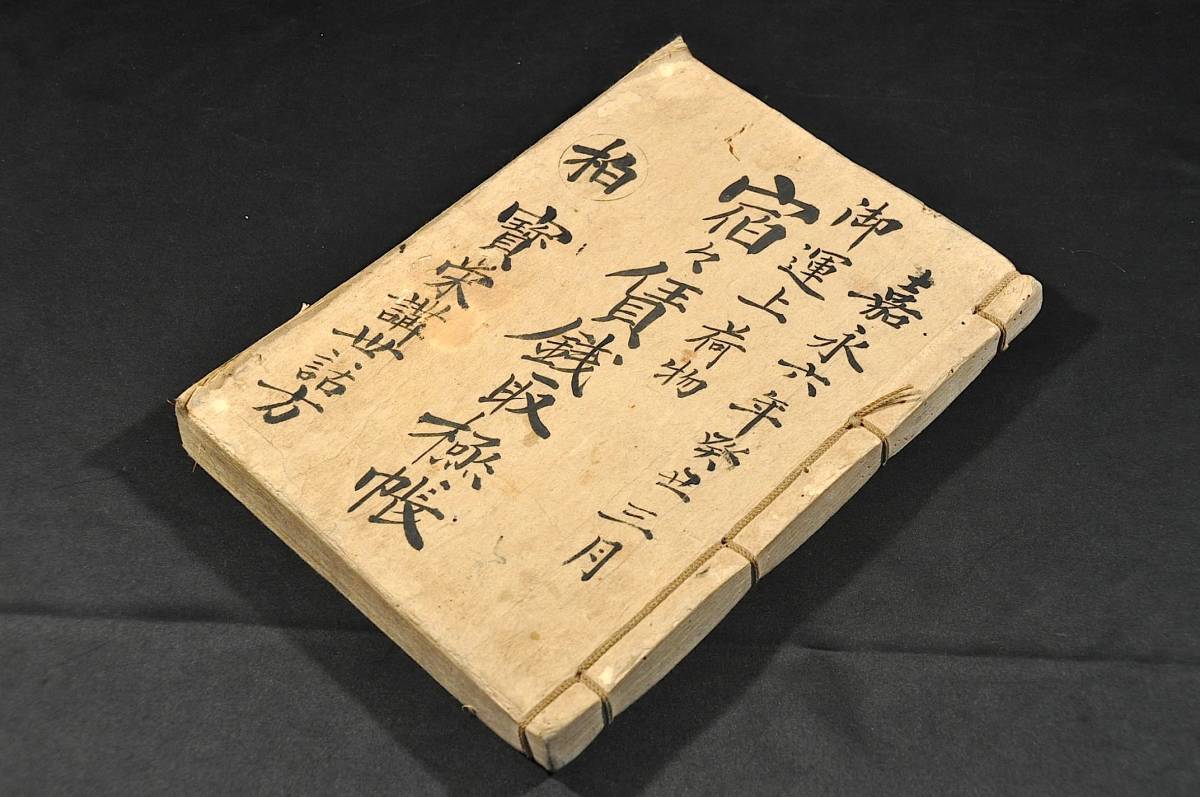 嘉永六年癸丑三月
御運上荷物
宿々賃銭取極帳
柏
寳栄講世話方